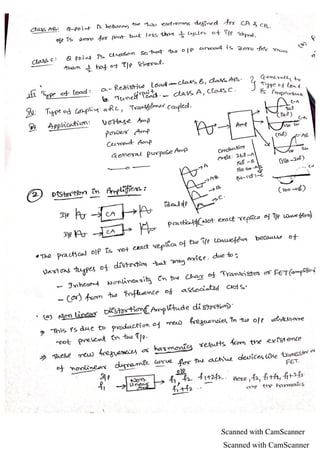 class AB: Q-point is between the two extremes defined for CA & CB.
o/p is zero for part but less than ½ cycle of i/p signal.
class C: Q point is chosen so that the o/p current is zero for more
than ½ half of i/p signal.
Type of load: a - Resistive load — class B, class AB.
b - Tuned circuit load — class A, class C.
Generally to
Type of load
Type of Coupling: RC, Transformer coupled.
Application: Voltage Amp
Power Amp
Current Amp
General purpose Amp
Amp
Conduction
Angle
② Distortion in Amplifiers:
I/p → CA → ideal o/p
I/p → CA → practical (Not exact replica of the i/p waveform)
* The practical o/p is not exact replica of the i/p waveform because of
various types of distortion that may arise. due to;
- Inherent Nonlinearity in the char of Transistor or FET (amplifier)
- (or) from the influence of associated ckts.
(a) Non linear Distortion (Amplitude distortion):
→ This is due to production of new frequencies in the o/p which are
not present in the i/p.
→ These new frequencies or harmonics results from the existence
of nonlinear dynamic curve for the active devices like transistor or
FET.
I/p f₁ → Non linear → o/p f₁, f₂, f₁+2f₂..
f₁+f₂..
Here, f₂, f₁+f₂, f₁+2f₂
are the harmonics
Scanned with CamScanner
Scanned with CamScanner